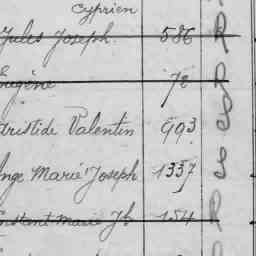 Cyprien
Jules Joseph 586
Eugène 72
Aristide Valentin 993
Ange Marie Joseph 1337
Constant Marie Jh 154